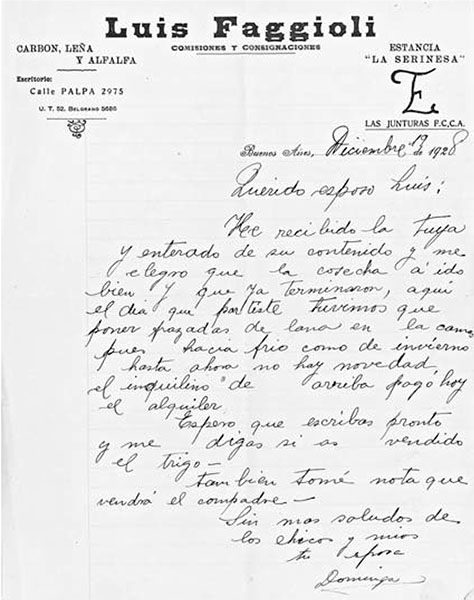 Luis Faggioli
COMISIONES Y CONSIGNACIONES
CARBON, LEÑA
Y ALFALFA
Escritorio:
Calle PALPA 2975
U. T. 52, BELGRANO 5686
ESTANCIA
"LA SERINESA"
LAS JUNTURAS F.C.C.A.
Buenos Aires, Diciembre 19 de 1928
Querido esposo Luis:
He recibido la tuya
y enterado de su contenido y me
elegro que la cosecha á ido
bien y que ya terminaron, aquí
el dia que partiste tuvimos que
poner frazadas de lana en la cama
pues hacia frio como de invierno
hasta ahora no hay novedad
el inquilino de arriba pagó hoy
el alquiler.
Espero que escribas pronto
y me digas si as vendido
el trigo—
tambien tomé nota que
vendrá el compadre—
Sin mas saludos de
los chicos y mios
tu esposa
Dominga